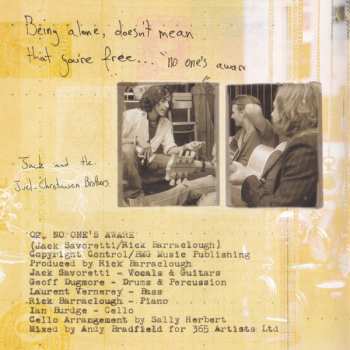 Being alone, doesn't mean
that you're free... "no one's aware
Jack and the
Juel-Christiansen Brothers
OP. NO ONE'S AWARE
(Jack Savoretti/Rick Barraclough)
Copyright Control/BMG Music Publishing
Produced by Rick Barraclough
Jack Savoretti - Vocals & Guitars
Geoff Dugmore - Drums & Percussion
Laurent Vernerey - Bass
Rick Barraclough - Piano
Ian Burdge - Cello
Cello Arrangement by Sally Herbert
Mixed by Andy Bradfield for 365 Artists Ltd